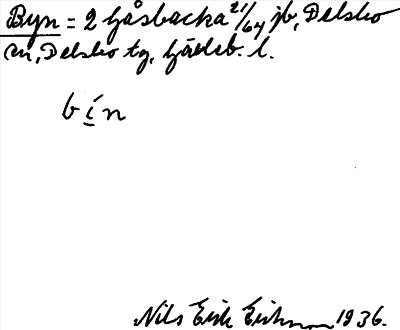 Byn = 2 Gåsbacka 21/64 jb, Delsbo
sn, Delsbo tg, Gävleb. l.
bi̲n
Nils Erik Eriksson 1936.